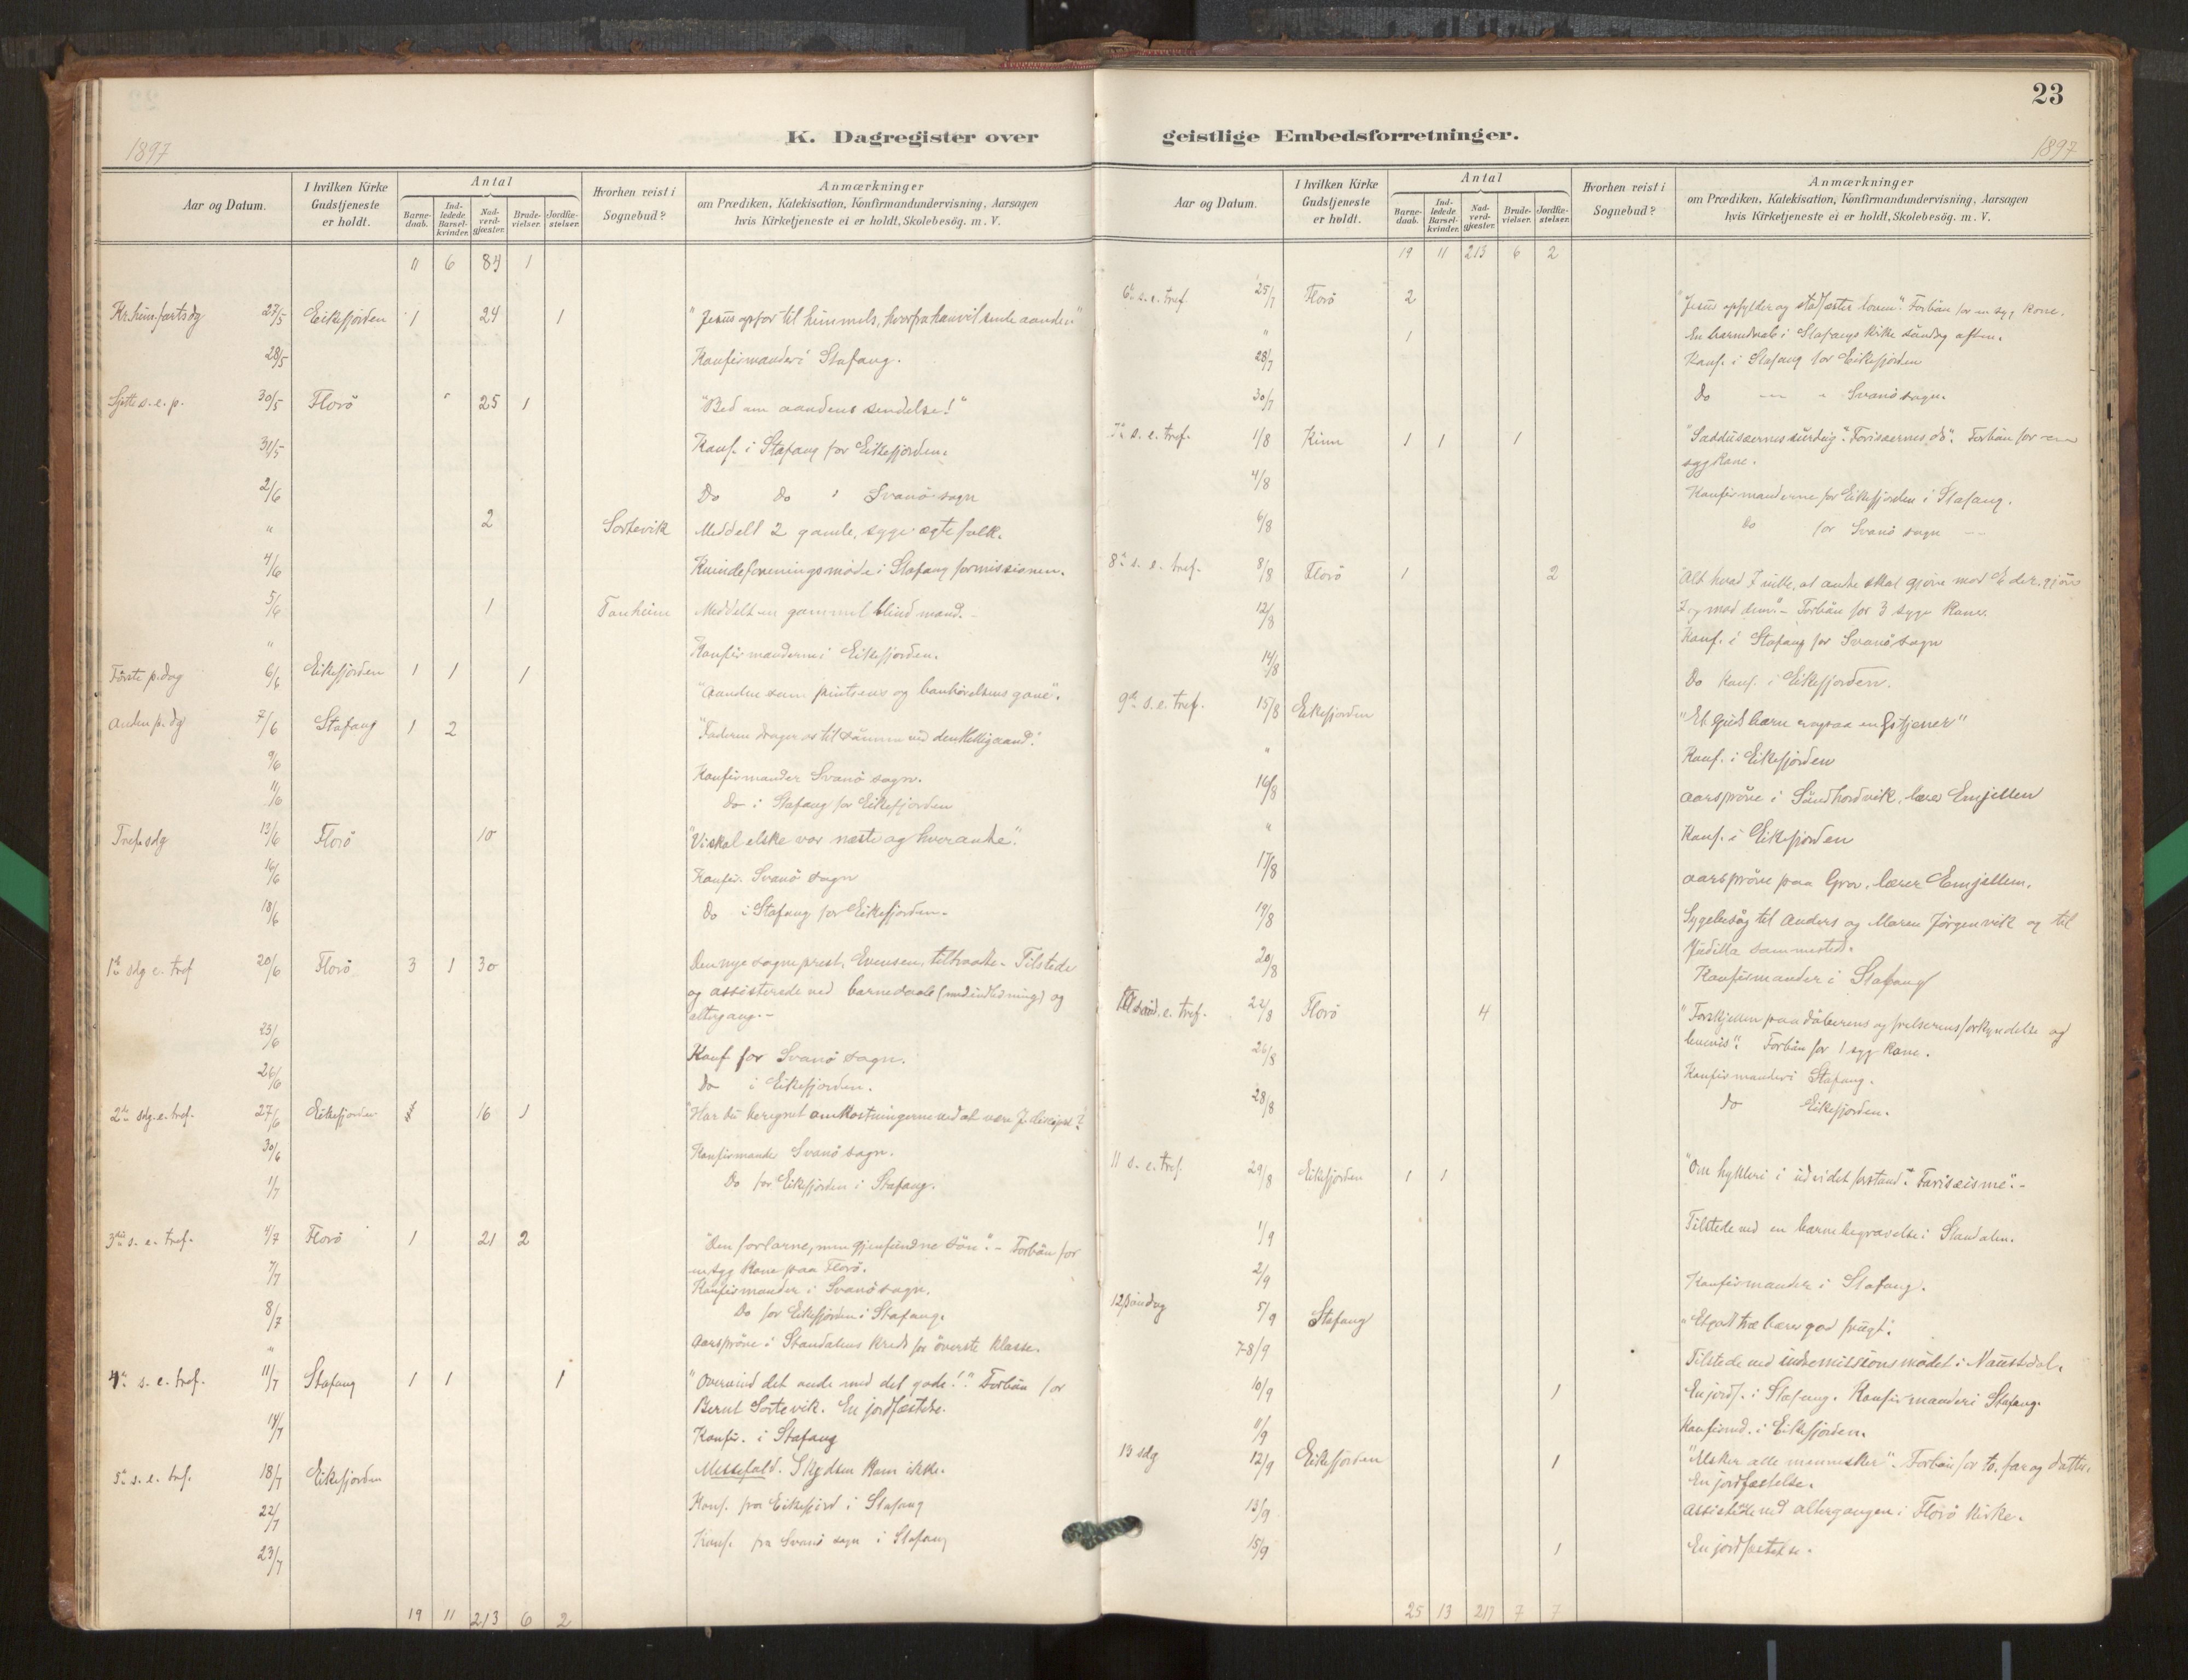 23
K. Dagregister over geistlige Embedsforretninger.
1897
1897
Aar og Datum.
I hvilken Kirke Gudstjeneste er holdt.
Antal
Barne-daab.
Ind-ledede Barsel-kvinder.
Nad-verd-gjæster.
Brude-vielser.
Jordfæ-stelser.
Hvorhen reist i Sognebud?
Anmærkninger
om Prædiken, Katekisation, Konfirmandundervisning, Aarsagen
hvis Kirketjeneste ei er holdt, Skolebesög. m. V.
11 6 84 1
Kr. himelfartsdg 27/5 Eikefjorden 1 24 1 "Jesus opfor til himmels, hvorfra han vil sende aanden"
28/5 Konfirmander i Stafang.
Sjette s. e. p. 30/5 Florö " 25 1 "Bed om aandens sendelse!"
31/5 Konf. i Stafang for Eikefjorden.
2/6 Do do " Svanö sogn
" 2 Sortevik Meddelt 2 gamle, syge ægtefolk.
4/6 Kvindeforeningsmöde i Stafang for missionen.
5/6 1 Tonheim Meddelt en gammel blind mand. -
" Konfirmanderne i Eikefjorden.
Förste p.dag 6/6 Eikefjorden 1 1 1 "Aanden som pintsens og bönhörelsens gave".
Anden p. dg 7/6 Stafang 1 2 "Faderen drager os til sönnen ved den Helligaand."
9/6 Konfirmander Svanö sogn.
11/6 Do i Stafang for Eikefjorden
Tref. sdg 13/6 Florö 10 "Vi skal elske vor næste og hverandre".
16/6 Konfir. Svanö sogn
18/6 Do i Stafang for Eikefjorden.
1ste sdg e. tref 20/6 Florö 3 1 30 Den nye sogneprest, Evensen, tiltraadte. Tilstede
og assisterede ved barnedaab (med indledning) og
altergang. -
23/6 Konf for Svanö sogn.
26/6 Do i Eikefjorden.
2den sdg. e. tref. 27/6 Eikefjorden 16 1 "Har du beregnet omkostningerne ved at være J. discipel?"
30/6 Konfirmander Svanö sogn.
1/7 Do for Eikefjorden i Stafang.
3die s. e. tref. 4/7 Florö 1 21 2 "Den fortarne, men gjenfundne sön". - Forbön for
en syg kone paa Florö.
7/7 Konfirmander i Svanö sogn.
8/7 Do for Eikefjorden i Stafang.
" Aarspröve i Standalens kreds for överste klasse.
4de s. e. tref. 11/7 Stafang 1 1 1 "Overvind det onde med det gode!" Forbön for
Bernt Sortevik. En jordfæstelse.
14/7 Konfir. i Stafang
5te s. e. tref. 18/7 Eikefjorden Messefald. Skydsen kom ikke.
22/7 Konf. fra Eikefjord i Stafang
23/7 Konf. fra Svanö sogn i Stafang
19 11 213 6 2
Aar og Datum.
I hvilken Kirke Gudstjeneste er holdt.
Antal
Barne-daab.
Ind-ledede Barsel-kvinder.
Nad-verd-gjæster.
Brude-vielser.
Jordfæ-stelser.
Hvorhen reist i Sognebud?
Anmærkninger
om Prædiken, Katekisation, Konfirmandundervisning, Aarsagen
hvis Kirketjeneste ei er holdt, Skolebesög. m. V.
19 11 213 6 2
6te s. e. tref. 25/7 Florö 2 "Jesus opfylder og stadfæster loven". Forbön for en syg kone.
" 1 En barnedaab i Stafangs kirke söndag aften.
28/7 Konf. i Stafang for Eikefjorden
30/7 Do — " Svanö sogn.
7de s. e. tref. 1/8 Kinn 1 1 1 "Saddusæernes surdeig". Farisæernes do". Forbön for en
syg kone.
4/8 Konfirmanderne for Eikefjorden i Stafang.
6/8 Do for Svanö sogn —
8de s. e. tref. 8/8 Florö 1 2 "Alt hvad I ville, at andre skal gjöre mod Eder, gjöre
I og mod dem". - Forbön for 3 syge koner.
12/8 Konf. i Stafang for Svanö sogn
14/8 Do konf. i Eikefjorden.
9de s. e. tref. 15/8 Eikefjorden "Et guds barn er ogsaa en Gs tjener"
" Konf. i Eikefjorden
16/8 Aarspröve i Sundhordvik, lærer Emjellen
" Konf. i Eikefjorden
17/8 Aarspröve paa Grov, lærer Emjellem.
19/8 Sygebesög til Anders og Maren Jörgenvik og til
Judilla sammesteds.
20/8 Konfirmander i Stafang
10de sönd. e. tref. 22/8 Florö 4 "Forskjellen paa döberens og frelserens forkyndelse og
levevis". Forbön for 1 syg kone.
26/8 Konfirmander i Stafang.
28/8 Do Eikefjorden.
11 s. e. tref. 29/8 Eikefjorden 1 1 "Om hykleri i udvidet forstand". Fariseisme". -
1/9 Tilstede ved en barnebegravelse i Standalen.
2/9 Konfirmander i Stafang.
12 söndag 5/9 Stafang "Et godt træ bærer god frugt".
7-8/9 Tilstede ved indremissionsmödet i Naustdal.
10/9 1 En jordf. i Stafang. Konfirmander i Stafang.
11/9 Konfirmd. i Eikefjorden.
13 sdg 12/9 Eikefjorden 1 "Elsker alle mennesker". Forbön for to, far og datter.
En jordfæstelse.
13/9 Assisterede ved altergangen i Florö kirke.
15/9 1 En jordfæstelse.
25 13 217 7 7